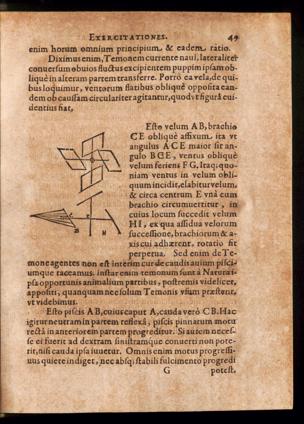 EXERCITATIONES. 49
enim horum omnium principium, & eadem ratio.
Diximus enim, Temonem currente naui, lateraliter
conuersum obuios fluctus excipientem puppim ipsam ob-
liquè in alteram partem transferre. Porrò ea vela, de qui-
bus loquimur, ventorum flatibus obliquè opposita ean-
dem ob caussam circulariter agitantur, quod vt figurâ eui-
dentius fiat,
Esto velum AB, brachio
CE obliquè affixum, ita vt
angulus ACE maior sit an-
gulo BCE, ventus obliquè
velum feriens FG, Itaq; quo-
niam ventus in velum obli-
quum incidit, elabitur velum,
& circa centrum E vnà cum
brachio circumuertitur, in
cuius locum succedit velum
HI, ex qua assidua velorum
successione, brachiorum & a-
xis cui adhærent, rotatio fit
perpetua. Sed enim de Te-
mone agentes non est interim cur de caudis auium pisci-
umque taceamus. instar enim temonum sunt à Natura i-
psa opportunis animalium partibus, postremis videlicet,
appositi, quanquam nec solum Temonis vsum præstent,
vt videbimus.
Esto piscis AB, cuius caput A, cauda verò CB. Hac
igitur neutram in partem reflexâ, piscis pinnarum motu
rectà in anteriorem partem progreditur. Si autem necef-
se ei fuerit ad dextram sinistramque conuerti non pote-
rit, nisi cauda ipsa iuuetur. Omnis enim motus progressi-
uus quiete indiget, nec absq; stabili fulcimento progredi
G potest.